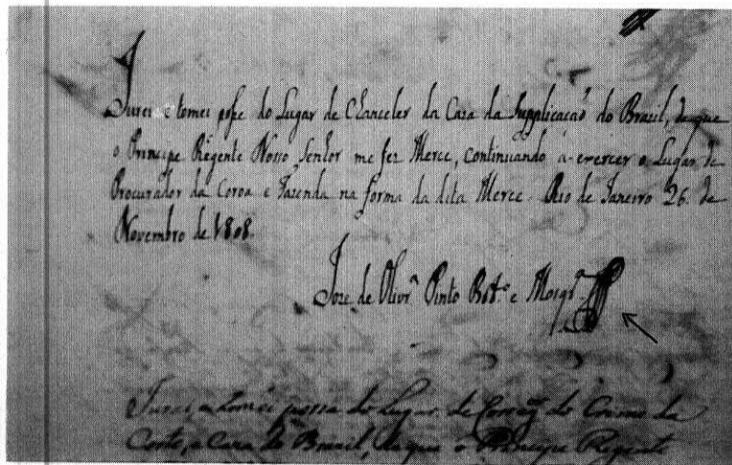 Jurei e tomei posse do Lugar de Chanceler da Caza da Supplicação do Brazil, de que
o Principe Regente Nosso Senhor me fez Merce, continuando a exercer o Lugar de
Procurador da Coroa e Fazenda na forma da dita Merce. Rio de Janeiro 26 de
Novembro de 1808.
Joze de Olivrª Pinto Botº e Mosqrª
Jurei, e tomei posse do Lugar de Correg do Crime da
Corte, e Caza do Brazil, de que o Principe Regente